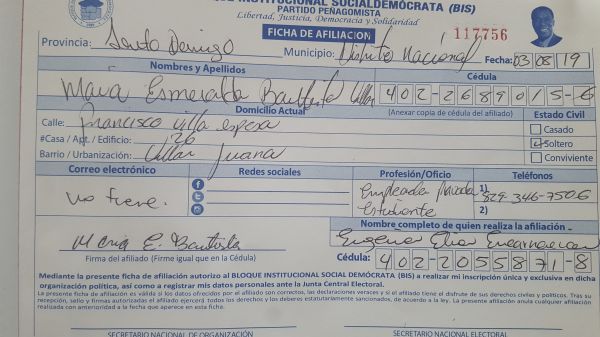 BLOQUE INSTITUCIONAL SOCIALDEMÓCRATA (BIS)
PARTIDO PEÑAGOMISTA
Libertad, Justicia, Democracia y Solidaridad
FICHA DE AFILIACIÓN
117756
Provincia: Santo Domingo Municipio: Distrito Nacional Fecha: 03 08 19
Nombres y Apellidos Cédula
Maria Esmeralda Bautista 402-2689015-6
Domicilio Actual (Anexar copia de cédula del afiliado) Estado Civil
Calle: Francisco villa espesa
#Casa / Apt. / Edificio: 26
Barrio / Urbanización: Villa Juana
Casado
Soltero
Conviviente
Correo electrónico Redes sociales Profesión/Oficio Teléfonos
no tiene. Empleada Privada 1) 829-346-7506
Estudiante 2)
Nombre completo de quien realiza la afiliación
Maria E. Bautista Eugenio Elias Encarnacion
Firma del afiliado (Firme igual que en la Cédula) Cédula: 402-2055871-8
Mediante la presente ficha de afiliación autorizo al BLOQUE INSTITUCIONAL SOCIAL DEMÓCRATA (BIS) a realizar mi inscripción única y exclusiva en dicha
organización política, así como a registrar mis datos personales ante la Junta Central Electoral.
La presente ficha de afiliación es válida si los datos del afiliado son correctos, las declaraciones veraces y si el afiliado tiene el disfrute de sus derechos civiles y políticos. Tras su
recepción, sello y firmas autorizadas el afiliado ejercerá todos los derechos y los deberes estatutariamente sancionados, de acuerdo a la ley. La presente afiliación anula cualquier afiliación
realizada con anterioridad a la fecha que aparece en esta ficha.
SECRETARIO NACIONAL DE ORGANIZACIÓN SECRETARIO NACIONAL ELECTORAL